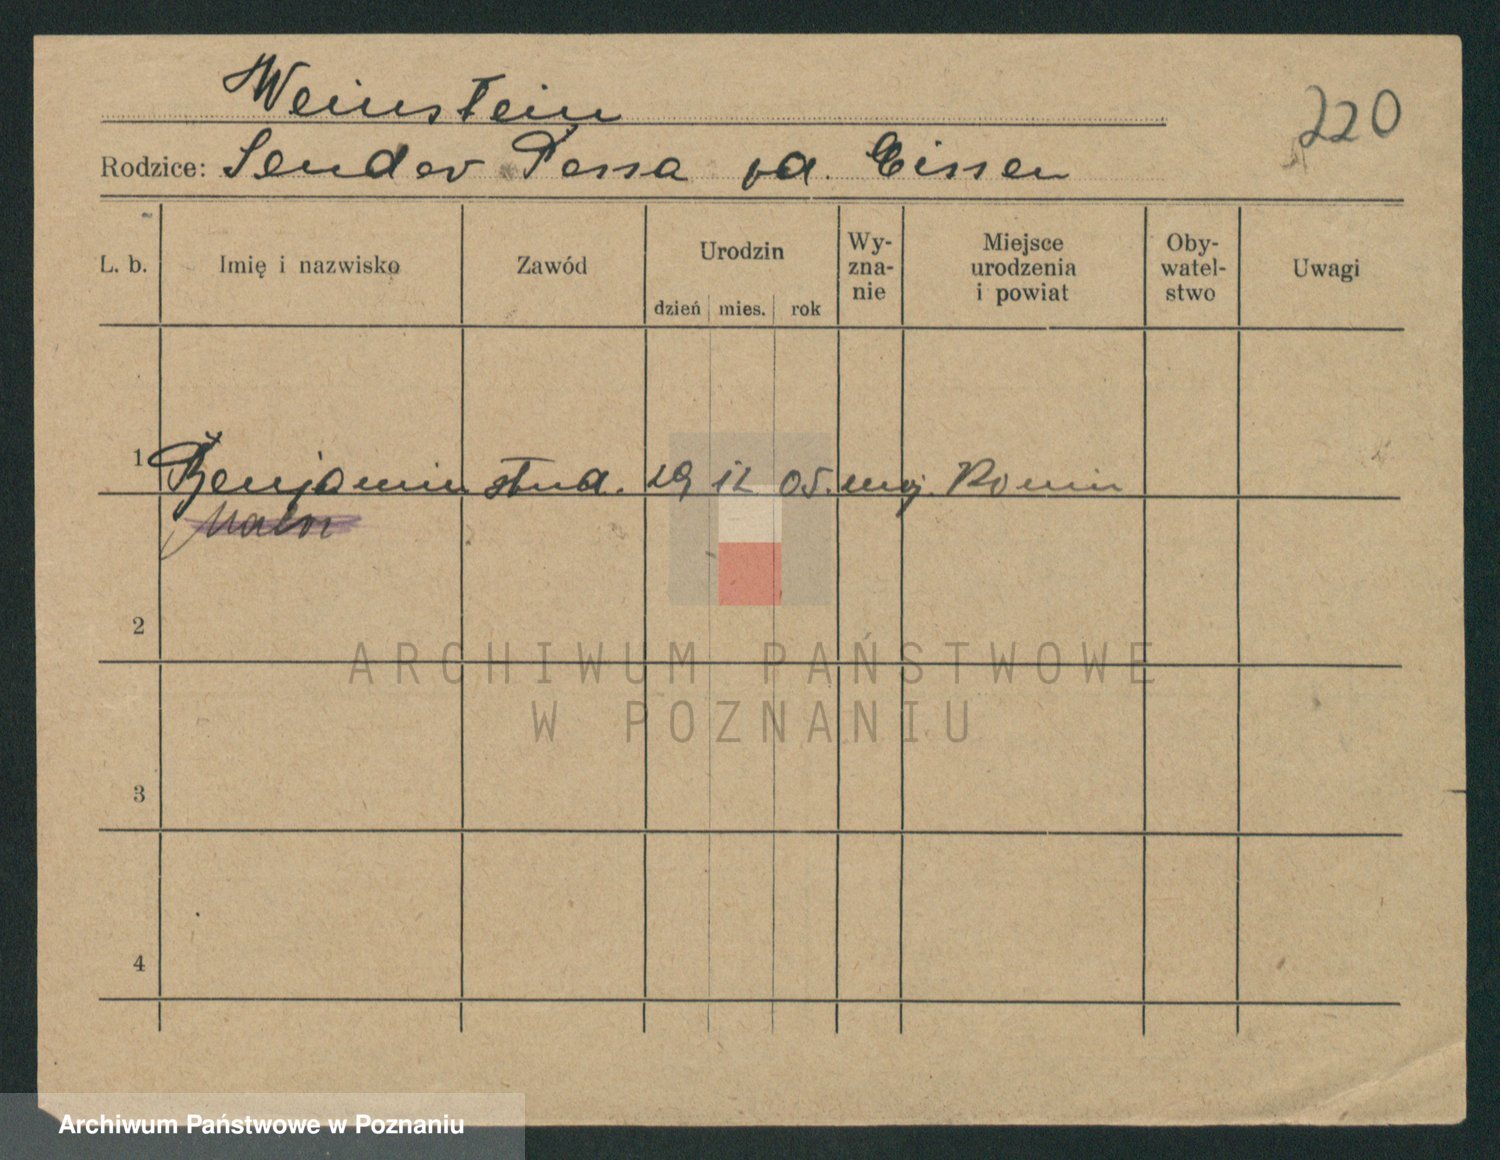 Weinstein
220
Rodzice: Sender Pessa vd. Eissen
L. b. Imię i nazwisko Zawód Urodzin dzień mies. rok Wy-zna-nie Miejsce urodzenia i powiat Oby-watel-stwo Uwagi
1 Benjamin stud. 29 12 05. moj. Konin
2
ARCHIWUM PAŃSTWOWE
W POZNANIU
3
4
Archiwum Państwowe w Poznaniu